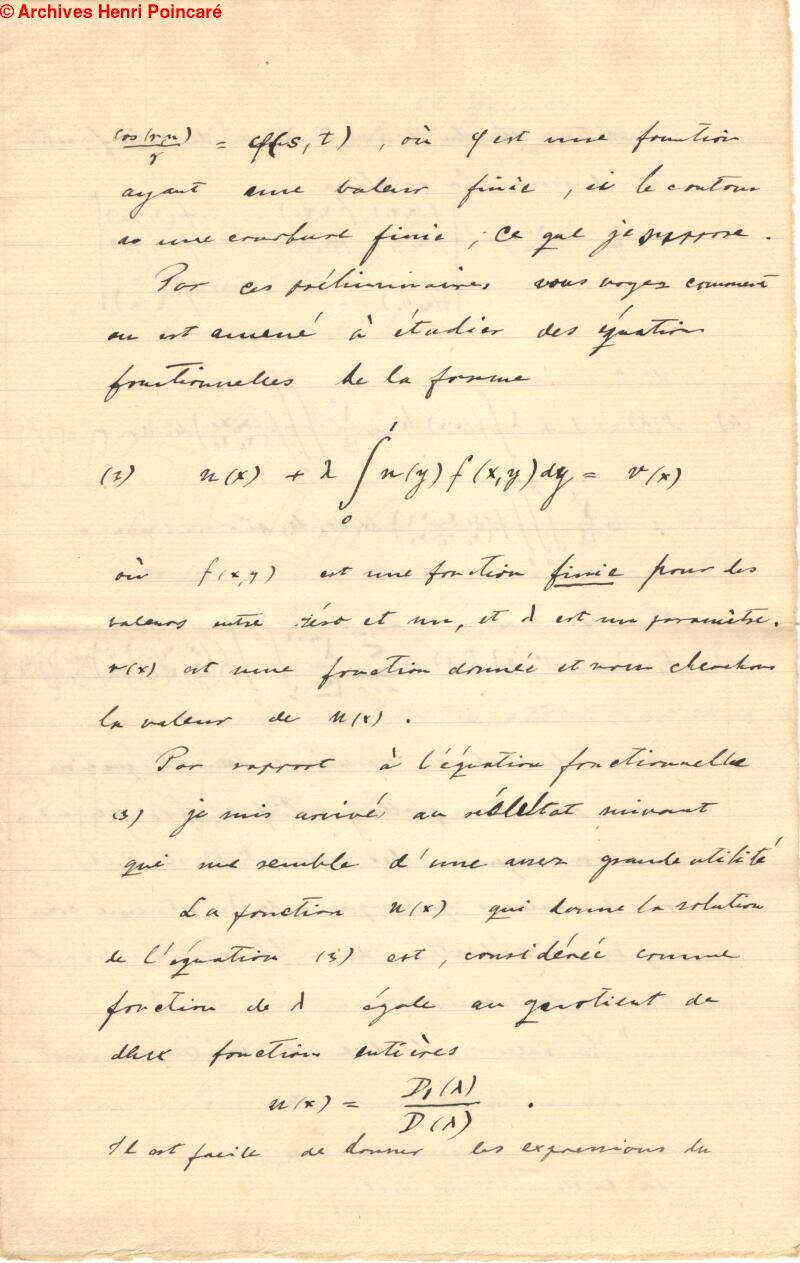 © Archives Henri Poincaré
cos(r,n)/r = φ(s, t), où φ est une fonction
ayant une valeur finie, si le contour
a une courbure finie; ce que je suppose.
Par ces préliminaires vous voyez comment
on est amené à étudier des équations
fonctionnelles de la forme
(3) u(x) + λ ∫₀¹ u(y) f(x,y) dy = v(x)
où f(x,y) est une fonction finie pour des
valeurs entre zéro et un, et λ est un paramètre.
v(x) est une fonction donnée et nous cherchons
la valeur de u(x).
Par rapport à l'équation fonctionnelle
(3) je suis arrivé au résultat suivant
qui me semble d'une assez grande utilité
La fonction u(x) qui donne la solution
de l'équation (3) est, considérée comme
fonction de λ égale au quotient de
deux fonctions entières
u(x) = D₁(λ)/D(λ) .
Il est facile de donner les expressions du